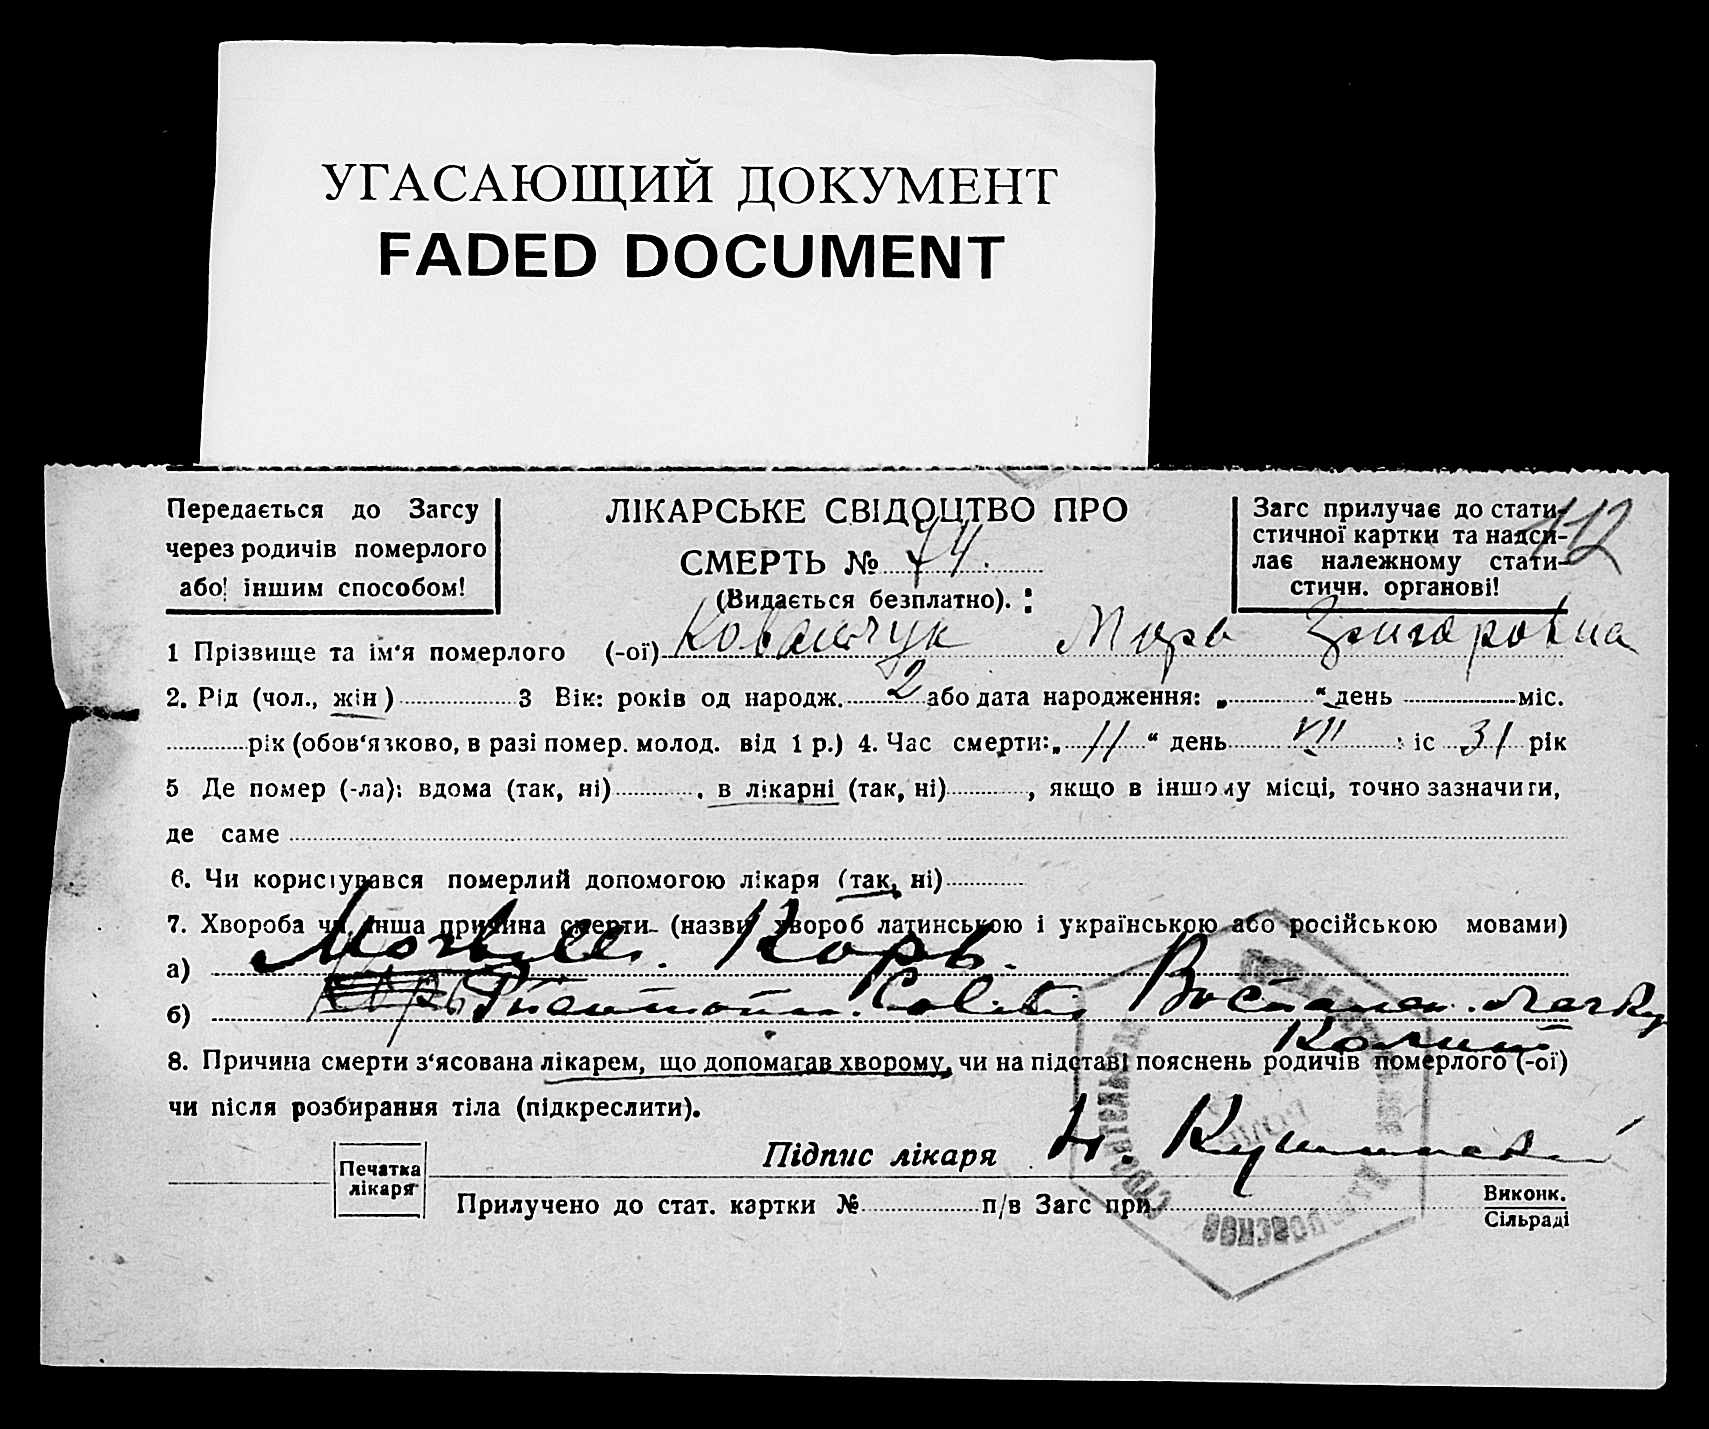 УГАСАЮЩИЙ ДОКУМЕНТ
FADED DOCUMENT
Передається до Загсу
через родичів померлого
або іншим способом!
ЛІКАРСЬКЕ СВІДОЦТВО ПРО
СМЕРТЬ № 74.
(Видається безплатно).
Загс прилучає до стати-
стичної картки та надси-
лає належному стати-
стичн. органові!
112
1 Прізвище та ім'я померлого (-ої) Ковальчук Григоровна
2. Рід (чол., жін) 3 Вік: років од народж. 2 або дата народження: „ “ день міс.
рік (обов'язково, в разі помер. молод. від 1 р.) 4. Час смерти: „ 11 “ день VII іс 31 рік
5 Де помер (-ла): вдома (так, ні) , в лікарні (так, ні) , якщо в іншому місці, точно зазначити,
де саме
6. Чи користувався померлий допомогою лікаря (так, ні)
7. Хвороба чи інша причина смерти (назви хвороб латинською і українською або російською мовами)
а) Morbilli. Корь.
б) Pneumonia. Colitis Воспален. легких
Колит
8. Причина смерти з'ясована лікарем, що допомагав хворому, чи на підставі пояснень родичів померлого (-ої)
чи після розбирання тіла (підкреслити).
Печатка
лікаря
Підпис лікаря
Прилучено до стат. картки № п/в Загс при
Виконк.
Сільраді